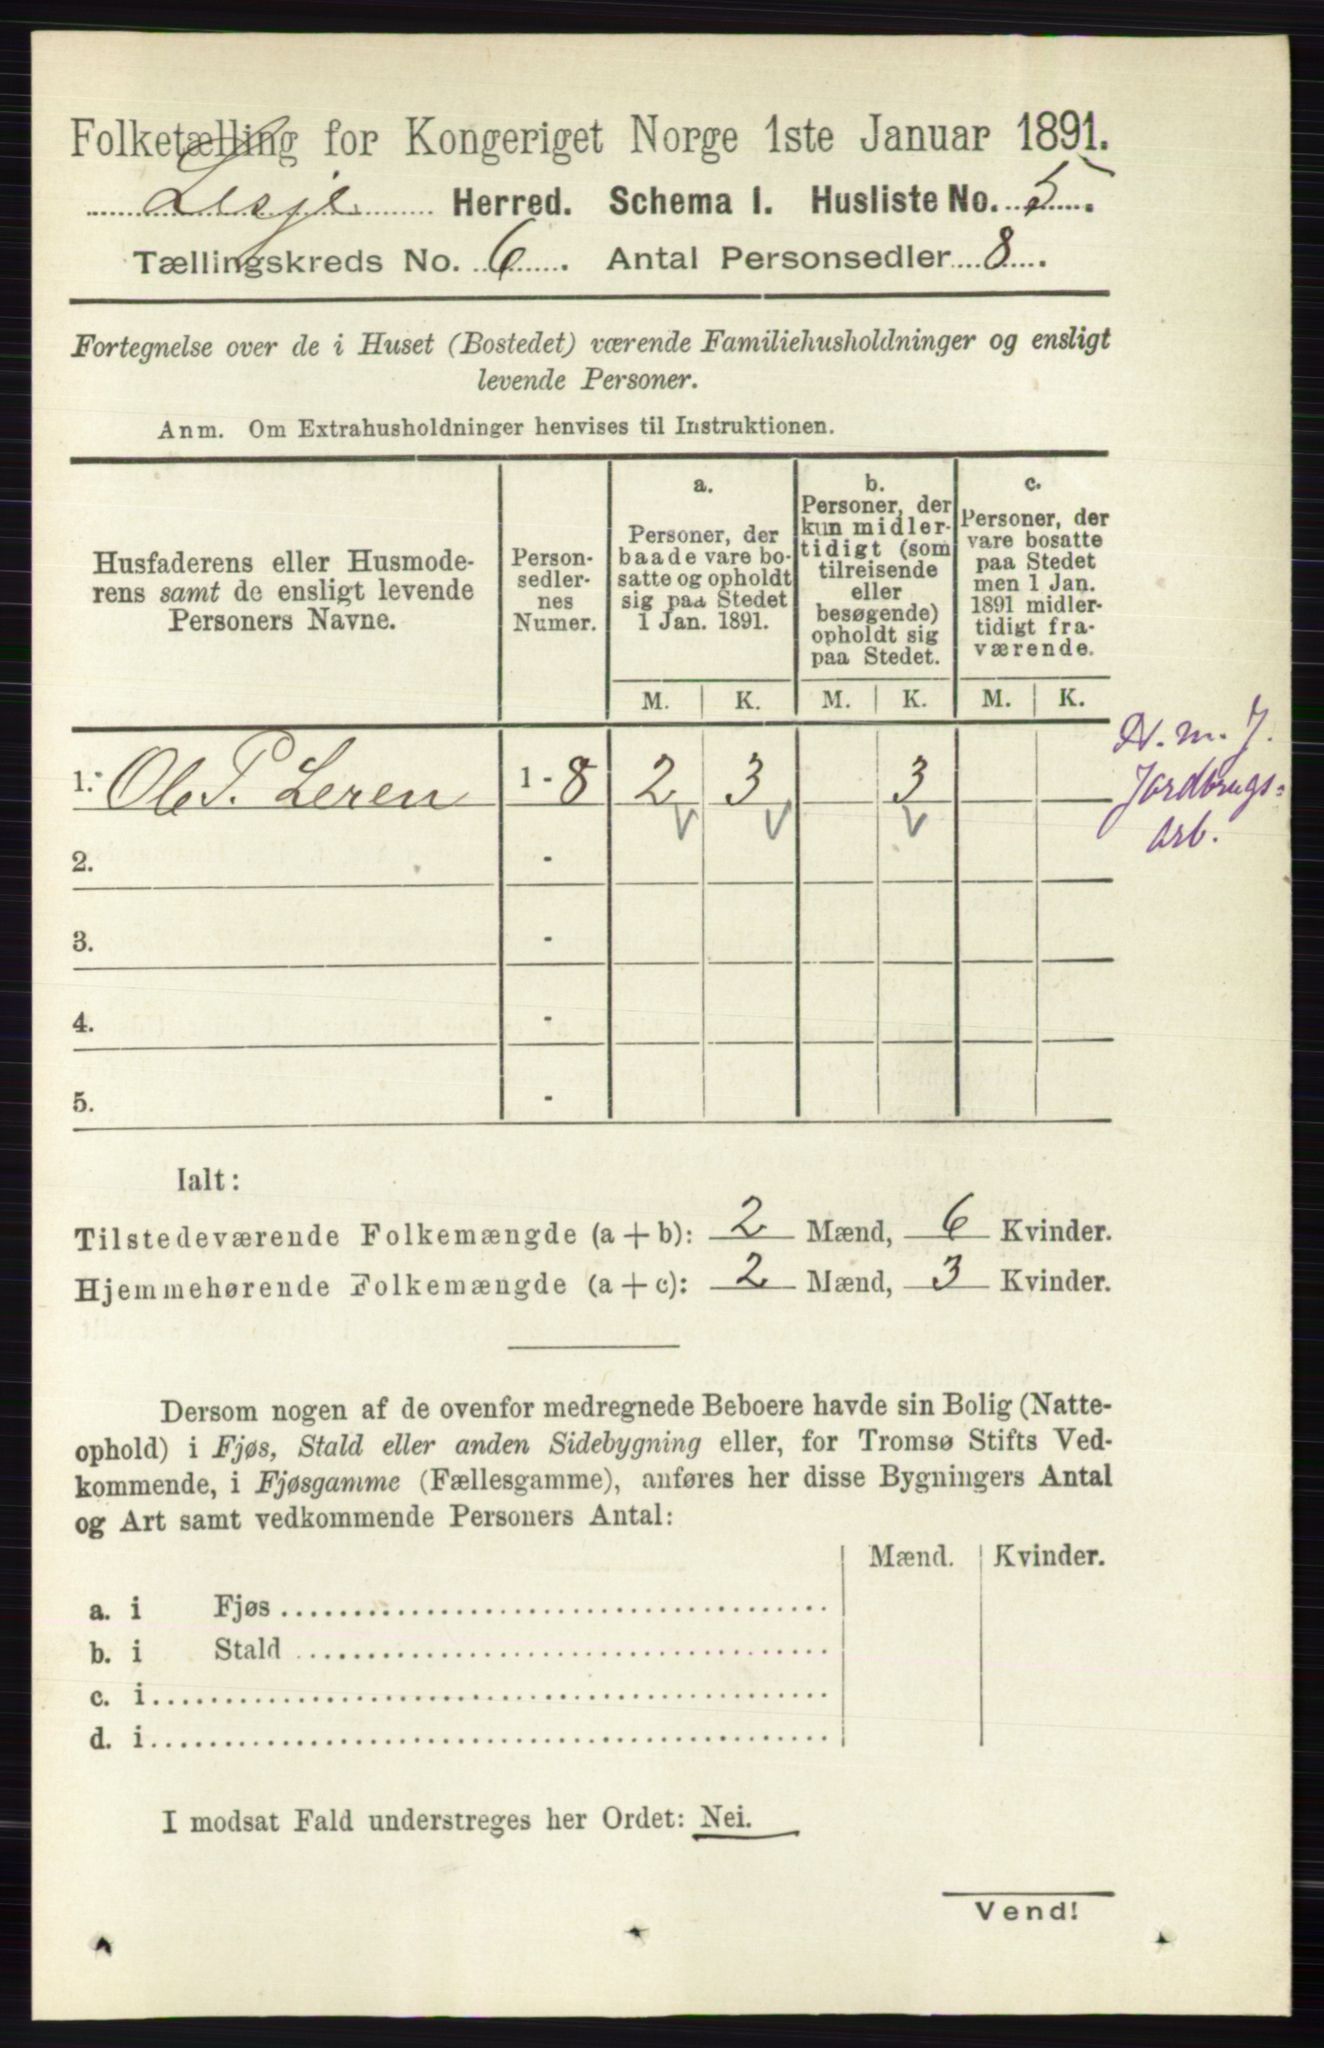 Folketælling for Kongeriget Norge 1ste Januar 1891.
Lesje Herred. Schema I. Husliste No. 5.
Tællingskreds No. 6. Antal Personsedler 8.
Fortegnelse over de i Huset (Bostedet) værende Familiehusholdninger og ensligt
levende Personer.
Anm. Om Extrahusholdninger henvises til Instruktionen.
Husfaderens eller Husmode-
rens samt de ensligt levende
Personers Navne.
Person-
sedler-
nes
Numer.
a.
Personer, der
baade vare bo-
satte og opholdt
sig paa Stedet
1 Jan. 1891.
b.
Personer, der
kun midler-
tidigt (som
tilreisende
eller
besøgende)
opholdt sig
paa Stedet.
c.
Personer, der
vare bosatte
paa Stedet
men 1 Jan.
1891 midler-
tidigt fra-
værende.
M. K. M. K. M. K.
1. Ole P. Leren 1 - 8 2 3 3
N. m. J.
Jordbrugs-
arb.
2. -
3. -
4. -
5. -
Ialt:
Tilstedeværende Folkemængde (a + b): 2 Mænd, 6 Kvinder.
Hjemmehørende Folkemængde (a + c): 2 Mænd, 3 Kvinder.
Dersom nogen af de ovenfor medregnede Beboere havde sin Bolig (Natte-
ophold) i Fjøs, Stald eller anden Sidebygning eller, for Tromsø Stifts Ved-
kommende, i Fjøsgamme (Fællesgamme), anføres her disse Bygningers Antal
og Art samt vedkommende Personers Antal:
Mænd. Kvinder.
a. i Fjøs
b. i Stald
c. i
d. i
I modsat Fald understreges her Ordet: Nei.
Vend!